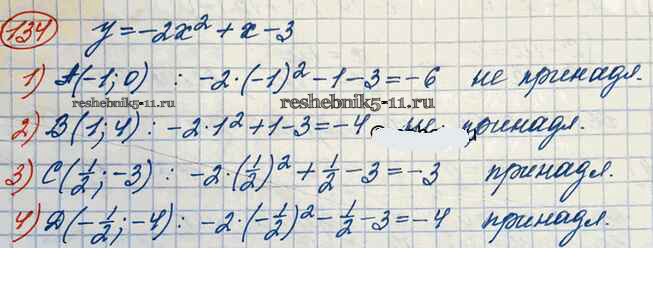 134 y = -2x² + x - 3
1) A(-1; 0) : -2·(-1)² - 1 - 3 = -6 не принадл.
reshebnik5-11.ru reshebnik5-11.ru
2) B(1; 4) : -2·1² + 1 - 3 = -4 принадл.
3) C(1/2; -3) : -2·(1/2)² + 1/2 - 3 = -3 принадл.
4) D(-1/2; -4) : -2·(-1/2)² - 1/2 - 3 = -4 принадл.
reshebnik5-11.ru